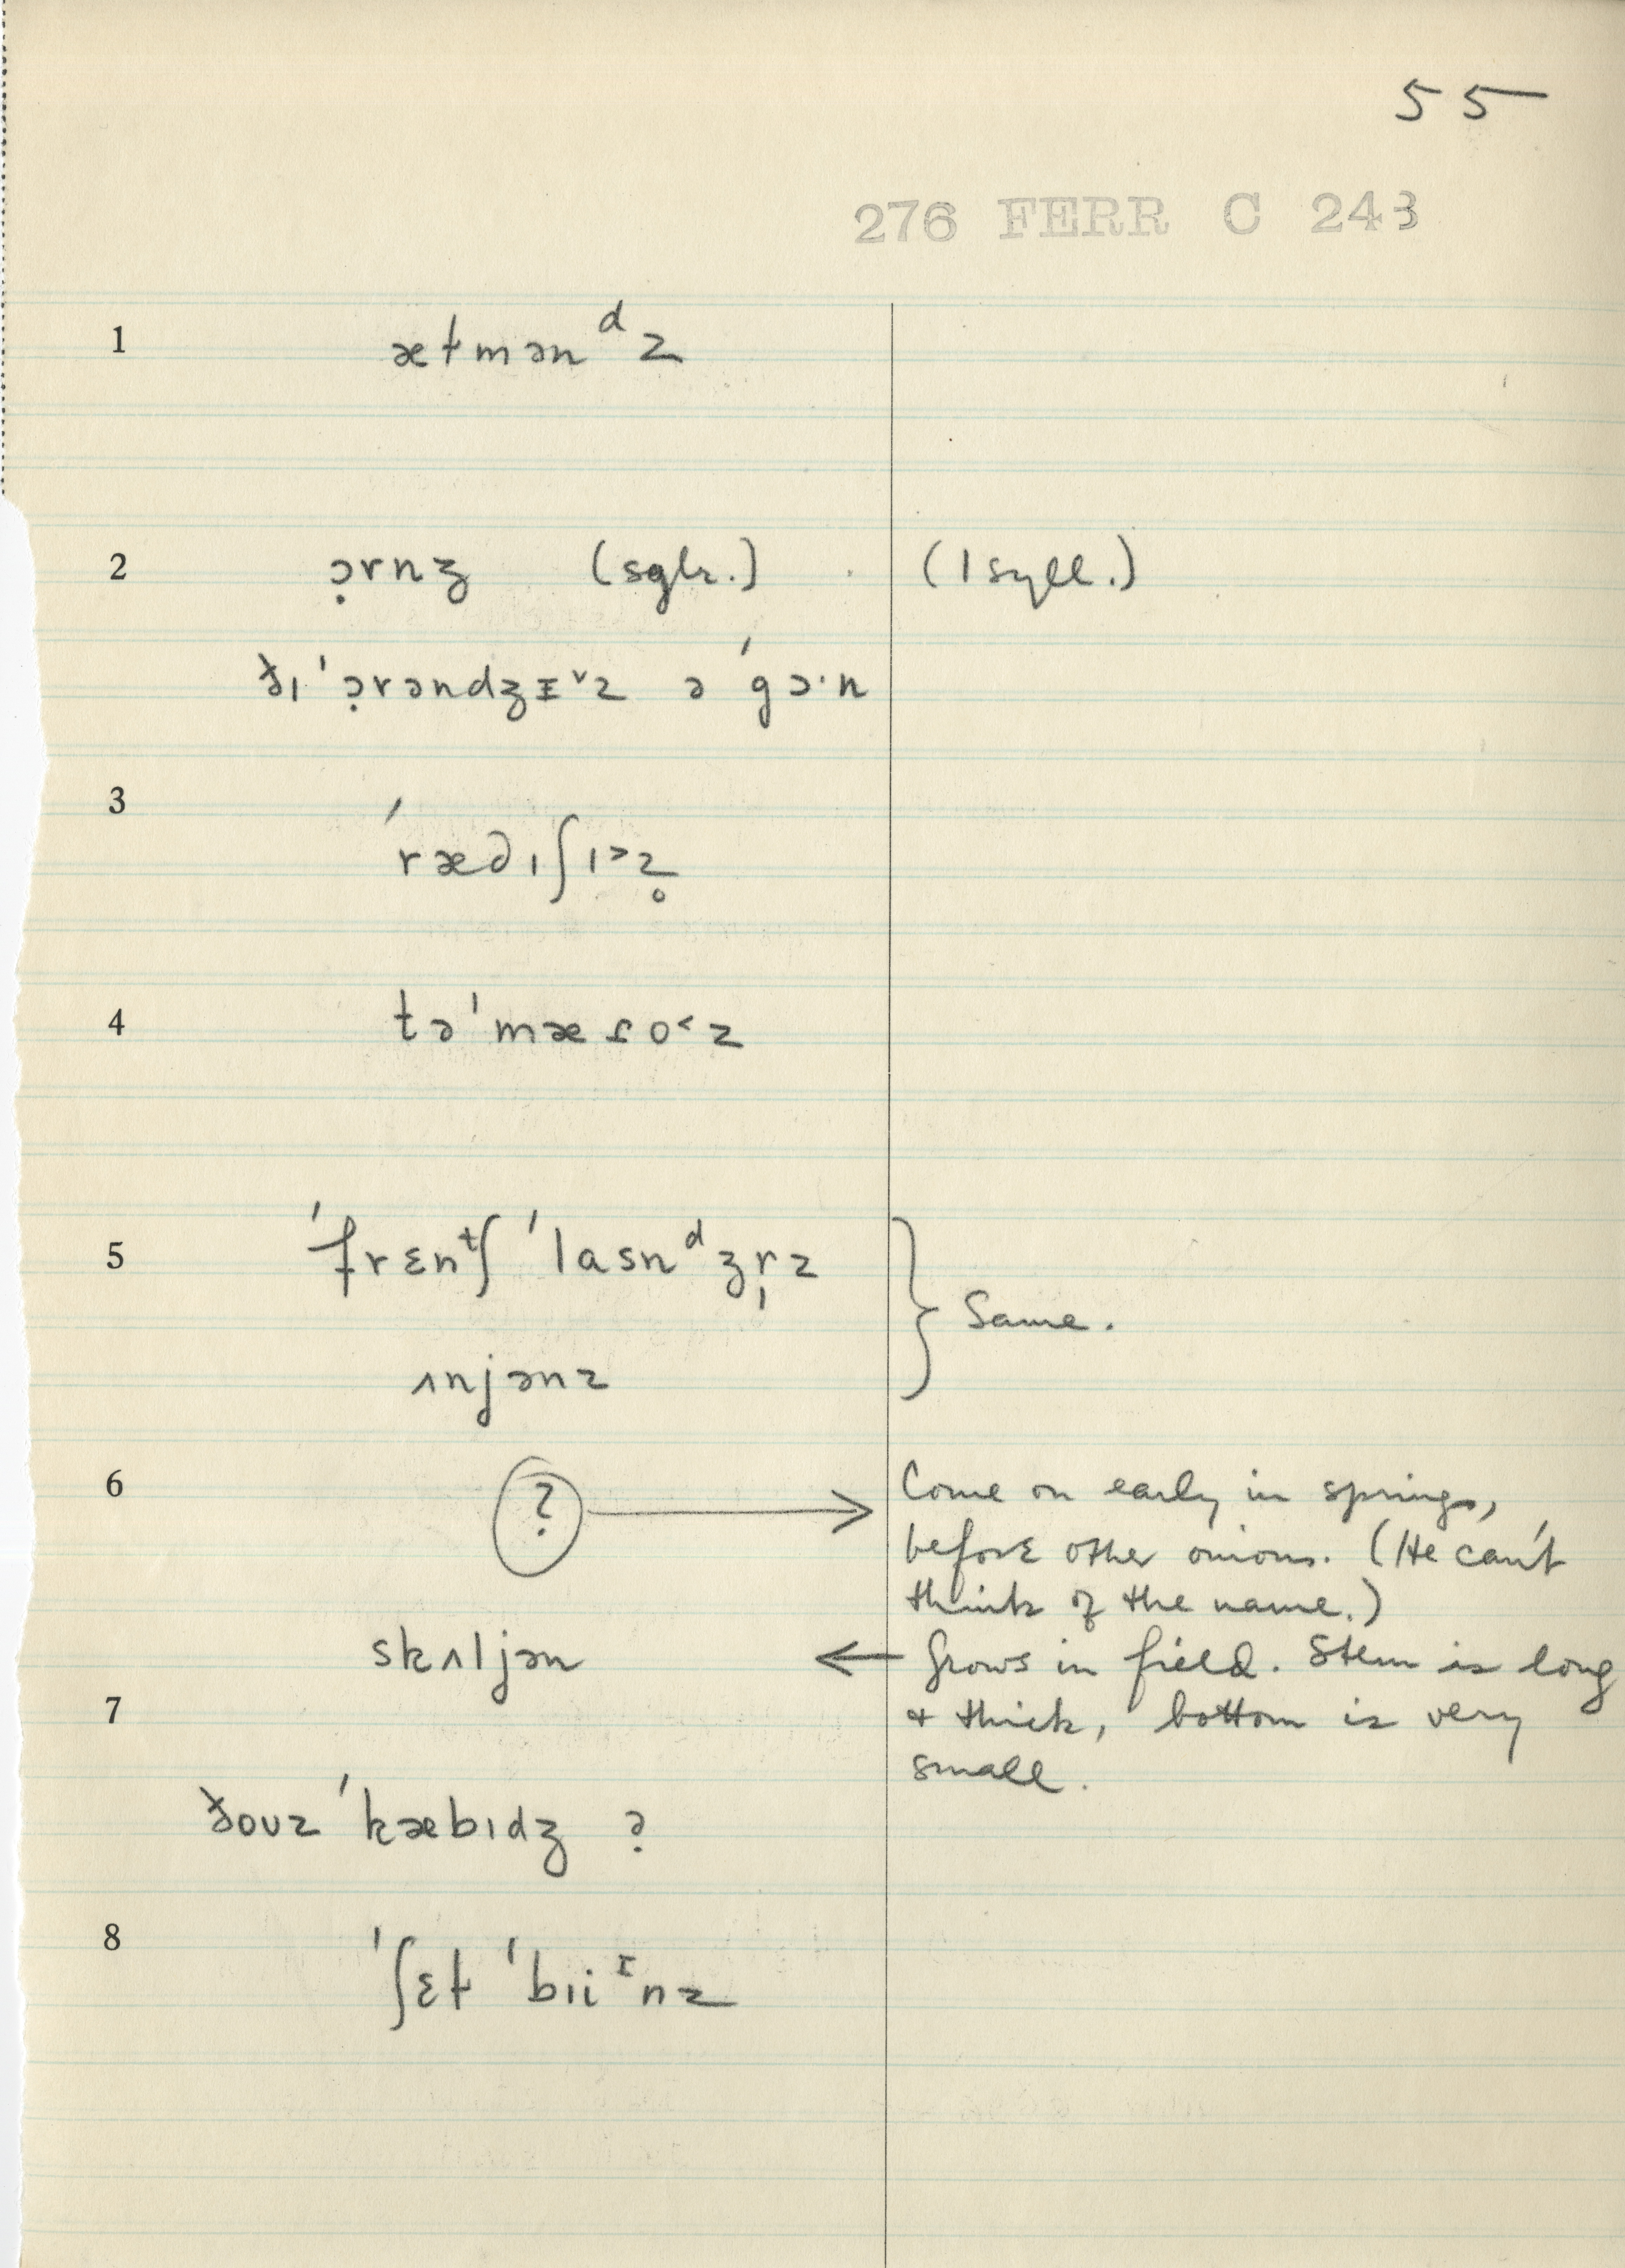 55
276 FERR C 243
1 æɫmənᵈz
2 ɔ̣rnʒ (sglr.) (1 syll.)
ðɪ ˈɔ̣rəndʒɪ˅z ə ˈgɔ·n
3 ˈræd̯ɪʃɪ˃z̥
4 təˈmæɾo˂z
5 ˈfrɛnᵗʃ ˈlasnᵈʒr̩z
} Same.
ʌnjənz
6 ? → Come on early in springs,
before other onions. (He can't
think of the name.)
skʌljən ← Grows in field. Stem is long
7 & thick, bottom is very
small.
ðouz ˈkæbɪdʒ ?
8 ˈʃɛɫ ˈbɪiᶦnz